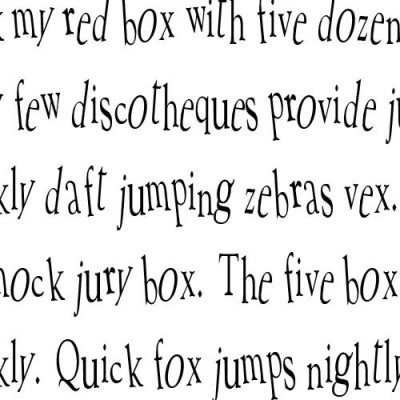 my red box with five dozen
few discotheques provide
daft jumping zebras vex.
jury box. The five box
Quick fox jumps nightly